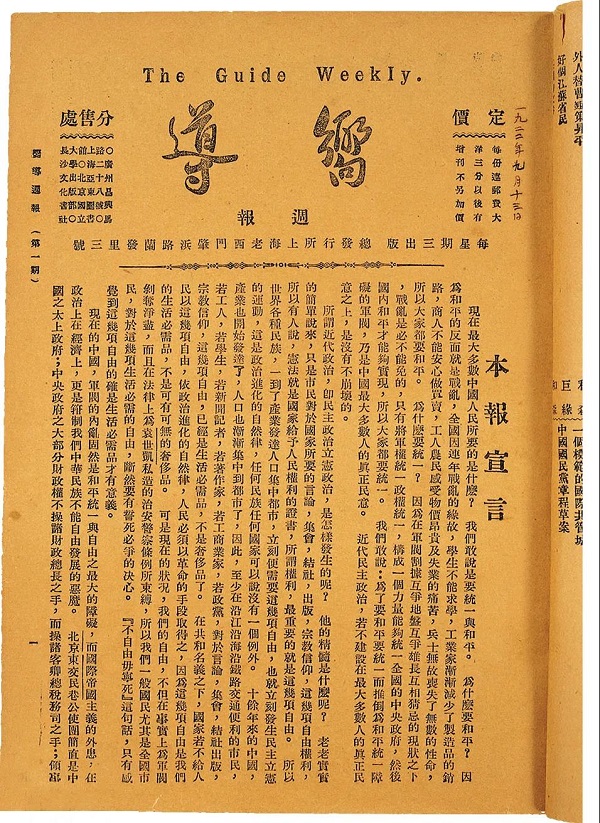 The Guide Weekly.
嚮導
週報
定價
每份連郵費大
洋三分以後有
增刊不另加價
分售處
路二十八號
上海亞東圖書
館
長沙文化書社
每星期三出版 總發行所上海老西門肇浜路蘭發里三號
一九二二年九月十三日
嚮導週報（第一期）
本報宣言
現在最大多數中國人民所要的是什麼？我們敢說是要統一與和平。爲什麼要和平？因
爲和平的反面就是戰亂，全國因連年戰亂的緣故，學生不能求學，工業家漸漸減少了製造品的銷
路，商人不能安心做買賣，工人農民感受物價昂貴及失業的痛苦，兵士無故喪失了無數的性命，
所以大家都要和平。爲什麼要統一？因爲在軍閥割據互爭地盤互爭雄長互相猜忌的現狀之下
，戰亂是必不能免的，只有將軍權統一政權統一，構成一個力量能夠統一全國的中央政府，然後
國內和平才能夠實現，所以大家都要統一。我們敢說：爲了要和平要統一而推倒爲和平統一障
礙的軍閥，乃是中國最大多數人的真正民意。近代民主政治，若不建設在最大多數人的真正民
意之上，是沒有不崩壞的。
所謂近代政治，卽民主政治立憲政治，是怎樣發生的呢？他的精髓是什麼呢？老老實實
的簡單說來，只是市民對於國家所要的言論，集會，結社，出版，宗教信仰，這幾項自由權利，
所以有人說，憲法就是國家給予人民權利的證書，所謂權利，最重要的就是這幾項自由。所以
世界各種民族，一到了產業發達人口集中都市，立刻便需要這幾項自由，也就立刻發生民主立憲
的運動，這是政治進化的自然律，任何民族任何國家可以說沒有一個例外。十餘年來的中國，
產業也開始發達了，人口也漸漸集中到都市了，因此，至少在沿江沿海沿鐵路交通便利的市民，
若工人，若學生，若新聞記者，若著作家，若工商業家，若政黨，對於言論，集會，結社出版，
宗教信仰，這幾項自由，已經是生活必需品，不是奢侈品了。在共和名義之下，國家若不給人
民以這幾項自由，依政治進化的自然律，人民必須以革命的手段取得之，因爲這幾項自由是我們
的生活必需品，不是可有可無的奢侈品。可是現在的狀況，我們的自由，不但在事實上爲軍閥
剝奪淨盡，而且在法律上爲袁世凱私造的治安警察條例所束縛，所以我們一般國民尤其是全國市
民，對於這幾項生活必需的自由，斷然要有誓死必爭的決心。『不自由毋寧死』這句話，只有感
覺到這幾項自由的確是生活必需品才有意義。
現在的中國，軍閥的內亂固然是和平統一與自由之最大的障礙，而國際帝國主義的外患，在
政治上在經濟上，更是箝制我們中華民族不能自由發展的惡魔。北京東交民巷公使團簡直是中
國之太上政府；中央政府之大部分財政權不操諸財政總長之手，而操諸客卿總稅務司之手；
一
好個江蘇省民
一個模範的國際共管城
中國國民黨章程草案